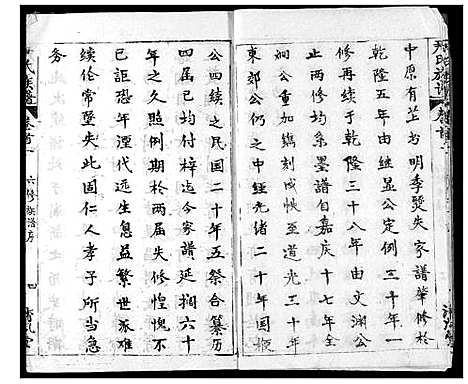 中原有芷於明季熒失家譜肇修於
乾隆五年由继显公定例三十年一
修再续于乾隆三十八年由文渊公
止两修均系墨譜自嘉庆十七年全
炯公重加鐫刻成帙至道光二十年
東郊公仍之中经光绪二十年国梗
公四续之民国二十年五祭合纂历
四届已均付梓迄今家譜延搁六十
年之久照例期於两届失修惶愧不
已詎恐年湮代远生息益繁世派难
续伦常墜失此固仁人孝子所当急
务
氏族譜
卷首
六修族譜序
四